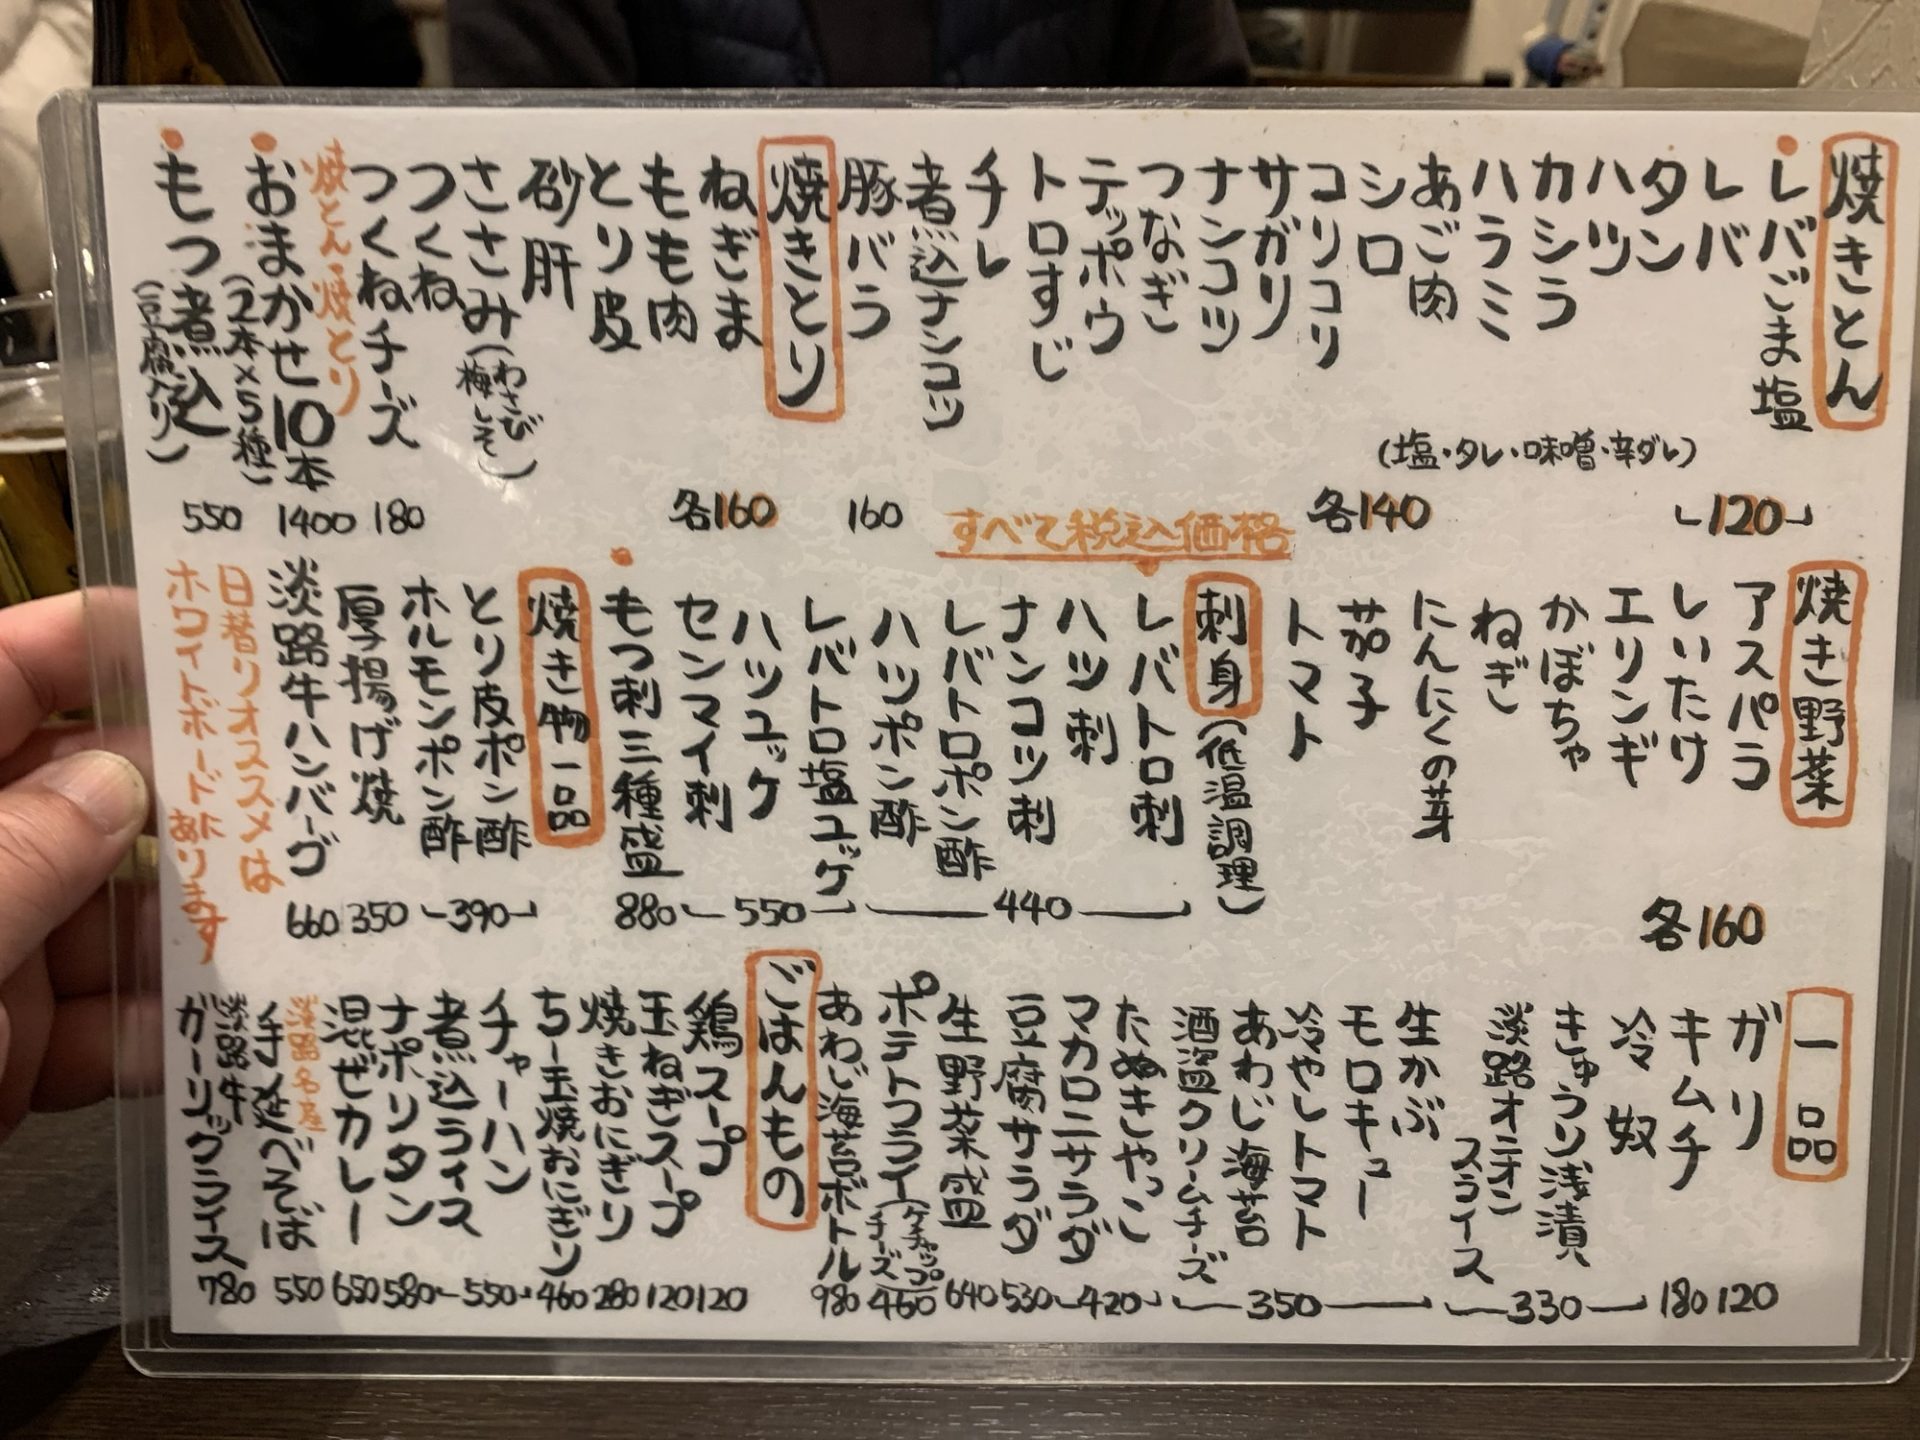 焼きとん
レバごま塩
レバ
120
タン
ハツ
カシラ
ハラミ
あご肉
シロ
コリコリ
サガリ
ナンコツ
つなぎ
テッポウ
トロすじ
チレ
煮込ナンコツ
(塩・タレ・味噌・辛ダレ)
各140
豚バラ
160
焼きとり
ねぎま
もも肉
とり皮
砂肝
ささみ(わさび
梅しそ)
つくね
各160
つくねチーズ
180
焼とん・焼とり
おまかせ10本
(2本×5種)
1400
もつ煮込
(豆腐入り)
550
すべて税込価格
焼き野菜
アスパラ
しいたけ
エリンギ
かぼちゃ
ねぎ
にんにくの芽
茄子
トマト
各160
刺身(低温調理)
レバトロ刺
ハツ刺
ナンコツ刺
レバトロポン酢
ハツポン酢
440
レバトロ塩ユッケ
ハツユッケ
センマイ刺
550
もつ刺三種盛
880
焼き物一品
とり皮ポン酢
ホルモンポン酢
390
厚揚げ焼
350
淡路牛ハンバーグ
660
日替りオススメは
ホワイトボードにあります
一品
ガリ
120
キムチ
180
冷奴
きゅうり浅漬
淡路オニオン
スライス
330
生かぶ
モロキュー
冷やしトマト
あわじ海苔
酒盗クリームチーズ
350
たぬきやっこ
マカロニサラダ
420
豆腐サラダ
530
生野菜盛
640
ポテトフライ(ケチャップ
チーズ
460
あわじ海苔ボトル
980
ごはんもの
鶏スープ
120
玉ねぎスープ
120
焼きおにぎり
280
ちー玉焼おにぎり
460
チャーハン
煮込ライス
550
ナポリタン
580
混ぜカレー
650
淡路名産
手延べそば
550
淡路牛
ガーリックライス
780